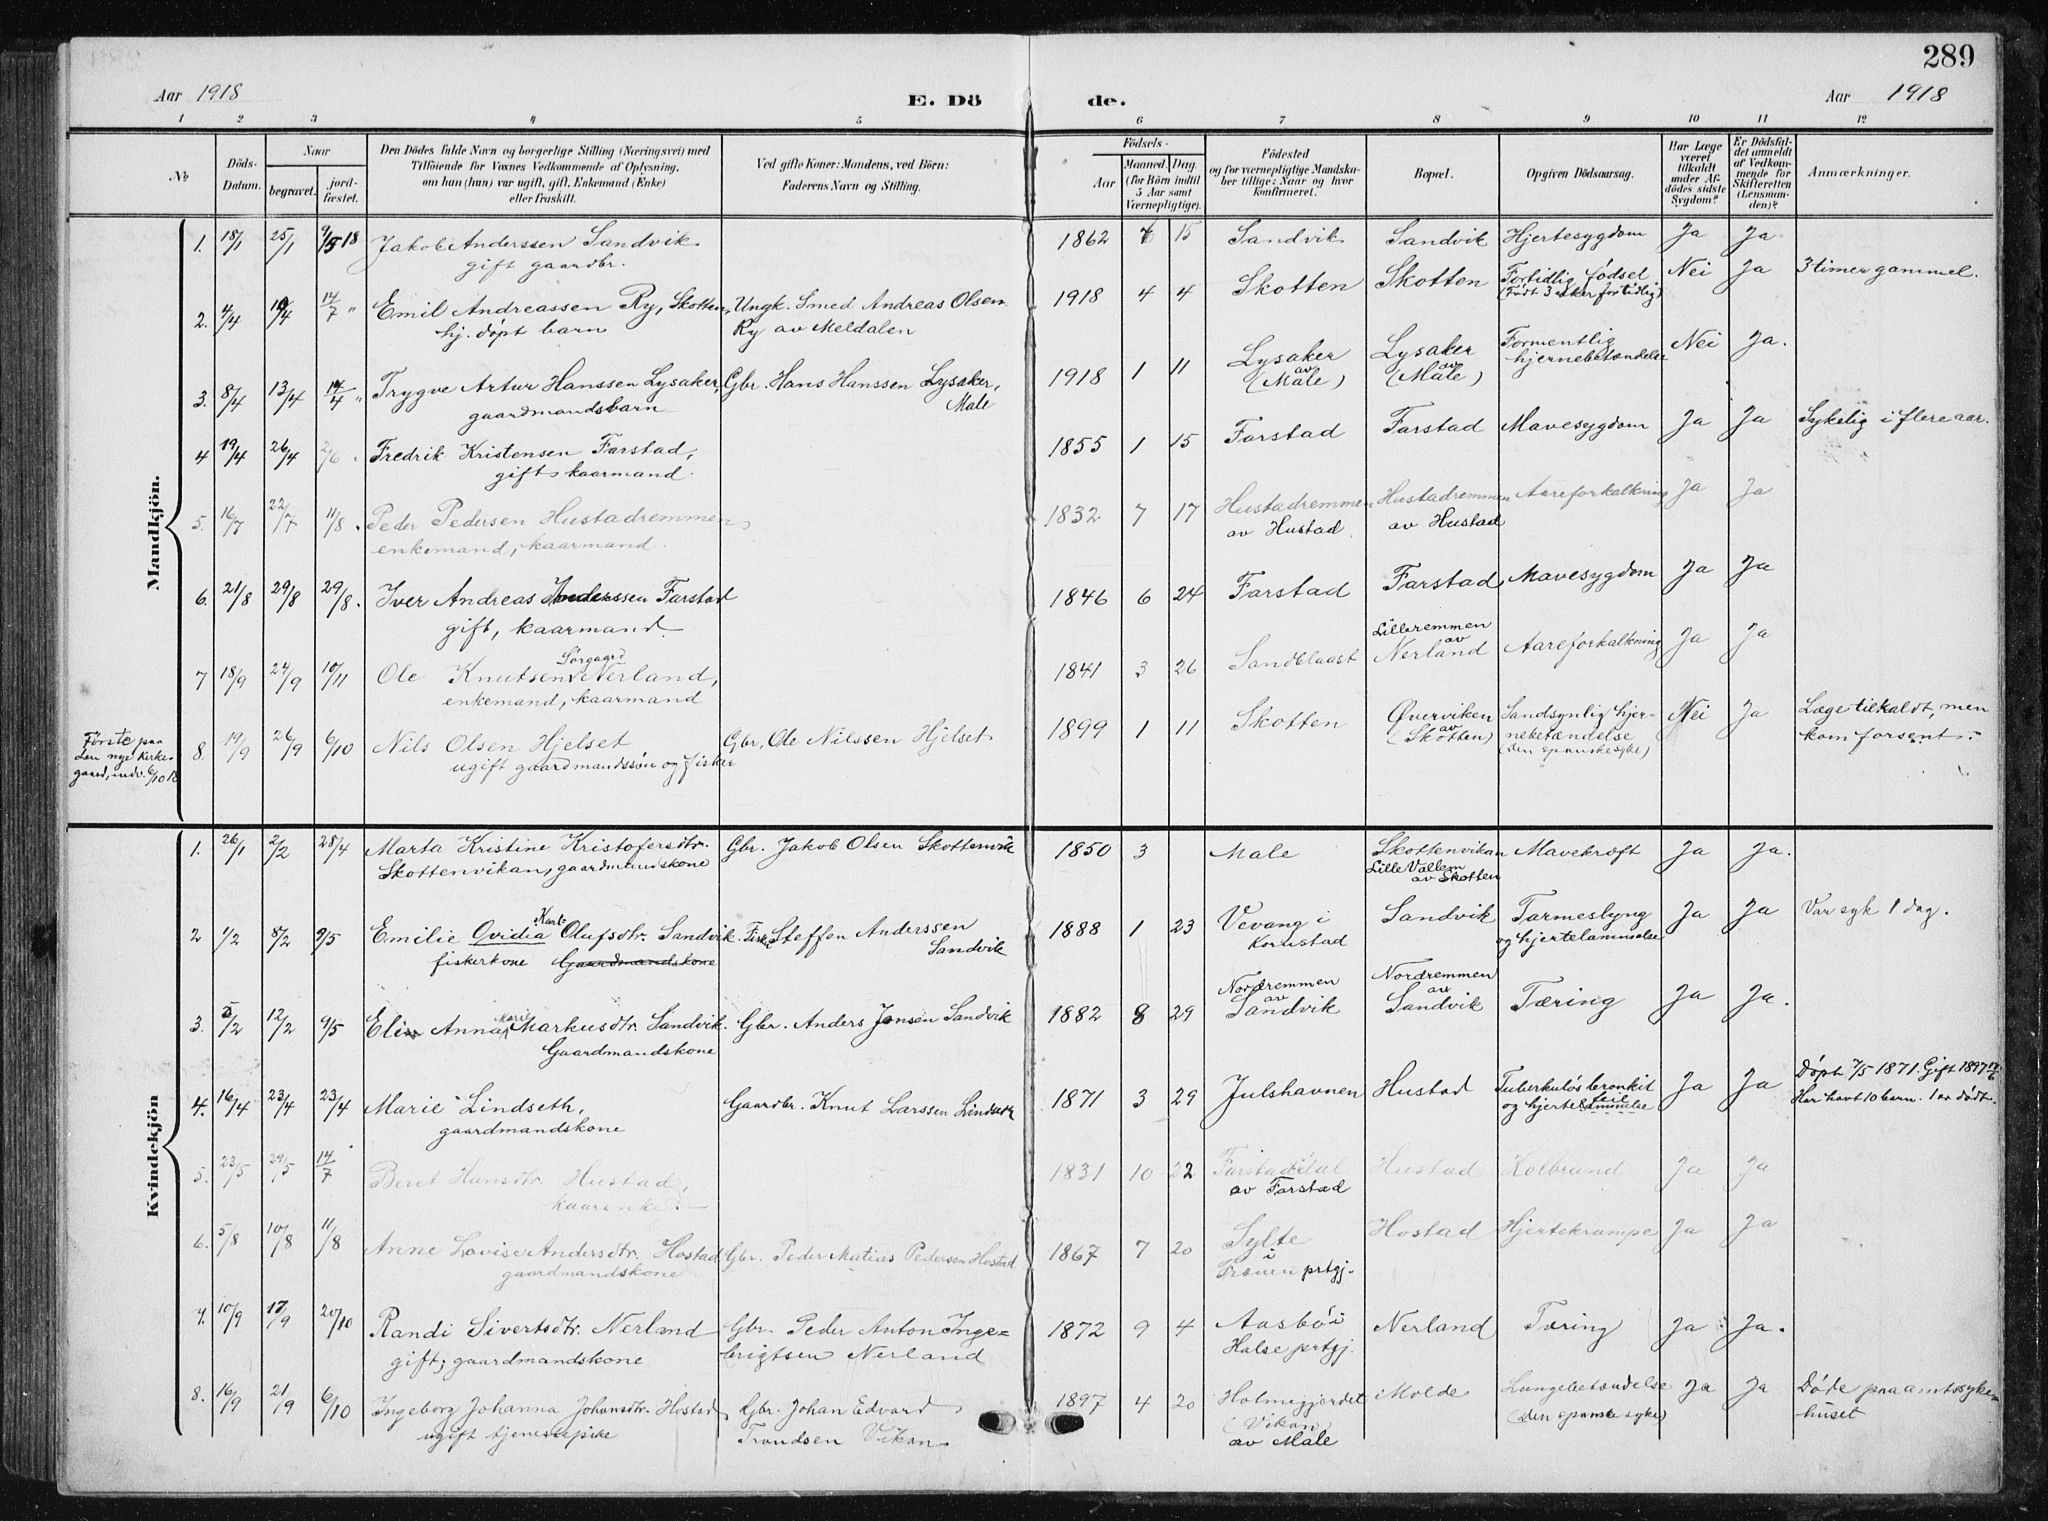 289
Aar 1918 E. Dö de. Aar 1918
1 2 3 4 5 6 7 8 9 10 11 12
No. Döds-Datum. Naar begravet. jordfæstet. Den Dödes fulde Navn og borgerlige Stilling (Næringsvei) med Tilföiende for Voxnes Vedkommende af Oplysning, om han (hun) var ugift, gift, Enkemand (Enke) eller fraskilt. Ved gifte Koner: Mandens, ved Börn: Faderens Navn og Stilling. Födsels- Aar Maaned. Dag. (for Börn indtil 5 Aar samt Værnepligtige). Födested og for værnepligtige Mandskaber tillige: Naar og hvor konfirmeret. Bopæl. Opgiven Dödsaarsag. Har Læge været tilkaldt under Afdödes sidste Sygdom? Er Dödsfaldet anmeldt af Vedkommende for Skifteretten (Lensmanden)? Anmærkninger.
Mandkjön.
1. 18/1 25/1 9/5 18 Jakob Anderssen Sandvik 1862 6 15 Sandvik Sandvik Hjertesygdom Ja Ja
gift gaardbr.
2. 4/4 19/4 14/7 " Emil Andreassen Ry, Skotten, Ungk. Smed Andreas Olsen 1918 4 4 Skotten Skotten Fortidlig fødsel Nei Ja 3 timer gammel.
hj. døpt barn Ry av Meldalen (Født 3 uker for tidlig)
3. 8/4 13/4 14/4 " Trygve Artur Hanssen Lysaker, Gbr. Hans Hanssen Lysaker, 1918 1 11 Lysaker Lysaker Formentlig Nei Ja.
gaardmandsbarn Male (av Male) (av Male) hjernebetændelse
4 19/4 26/4 2/6 . Fredrik Kristensen Farstad, 1855 1 15 Farstad Farstad Mavesygdom Ja Ja Sykelig i flere aar.
gift, kaarmand.
5. 16/7 22/7 11/8 . Peder Pedersen Hustadremmen 1832 7 17 Hustadremmen Hustadremmen Aareforkalkning Ja Ja
enkemand, kaarmand. av Hustad. av Hustad
6. 21/8 29/8 29/8. Iver Andreas Anderssen Farstad 1846 6 24 Farstad Farstad Mavesygdom Ja Ja
gift, kaarmand.
7 18/9 24/9 10/11 Ole Knutsen Sørgaard Nerland, 1841 3 26 Sandblaast Lilleremmen av Nerland Aareforkalkning Ja Ja
enkemand, kaarmand
Første paa den nye kirkegaard, indv. 6/10 18
8. 19/9 26/9 6/10 Nils Olsen Hjelset Gbr. Ole Nilssen Hjelset 1899 1 11 Skotten Øverviken Sandsynlig hjer- Nei Ja Læge tilkaldt, men
ugift gaardmandssøn og fisker (av Skotten) nebetændelse kom forsent.
(den spanske syke)
Kvindekjön
1. 26/1 2/2 28/4 Marta Kristine Kristofersdtr. Gbr. Jakob Olsen Skottenvik 1850 3 Male Skottenvikan Mavekræft Ja Ja.
Skottenvikan, gaardmandskone Lille Vollem av Skotten
2 1/2 8/2 9/5 Emilie Ovidia Karl-Olufsdtr. Sandvik. Fisk. Steffen Anderssen 1888 1 23 Vevang i Sandvik Tarmeslyng Ja Ja Var syk 1 dag.
fiskerkone Gaardmandskone Sandvik Kornstad og hjertelammelse
3. 5/2 12/2 9/5 Elin Anna Marie Markusdtr. Sandvik. Gbr. Anders Jonsen Sandvik 1882 8 29 Nordremmen av Sandvik Nordremmen av Sandvik Tæring Ja Ja.
Gaardmandskone
4. 16/4 23/4 23/4 Marie Lindseth, Gaardbr. Knut Larssen Lindseth 1871 3 29 Julshavnen Hustad Tuberkuløs bronkit Ja Ja Døpt 7/5 1871. Gift 1897
gaardmandskone og hjertefeil Har havt 10 barn. 1 av dødt.
5. 23/5 29/5 14/7 Beret Hansdtr. Hustad, 1831 10 22 Farstaddal Hustad Kolbrand Ja Ja
kaarenke. av Farstad
6. 5/8 10/8 11/8 Anne Lovise Andersdtr. Hostad Gbr. Peder Matias Pedersen Hostad 1867 7 20 Sylte Hostad Hjertekrampe Ja Ja
gaardmandskone i Frænen prtgj.
7. 10/9 17/9 20/10 Randi Sivertsdtr. Nerland Gbr. Peder Anton Inge- 1872 9 4 Aasbø i Nerland Tæring Ja Ja.
gift, gaardmandskone brigtsen Nerland Halse prtgj.
8. 16/9 21/9 6/10 Ingeborg Johanna Johansdtr. Hostad Gbr. Johan Edvard 1897 4 20 Holmegjerdet Molde Lungebetændelse Ja Ja Døde paa amtssyke-
ugift tjenestepike Trondsen Vikan (Vikan) (den spanske syke) huset
av Male